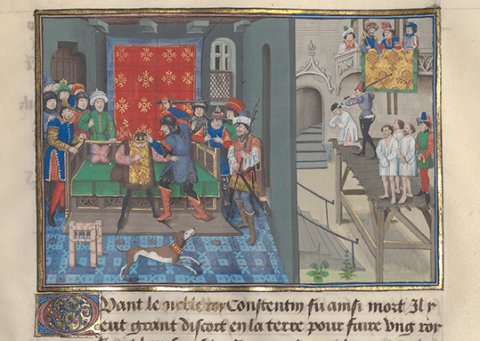 Quant le noble roy Constentin fu ainsi mort. Il y
eut grant discort en la terre pour faire ung roy